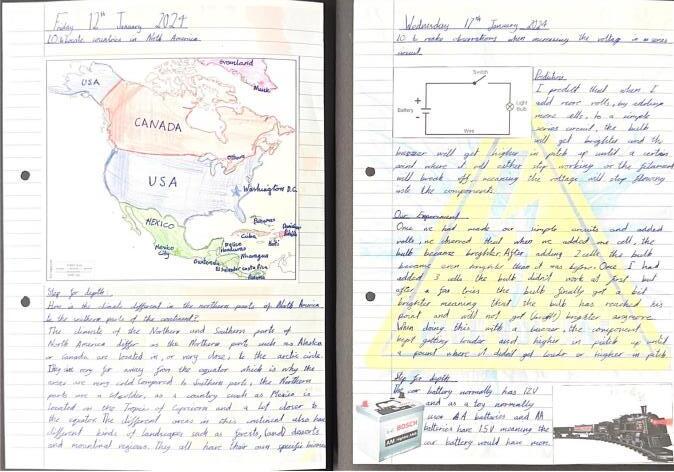 Friday 12th January 2024
LO: to locate countries in North America
Greenland
Nuuk
USA
CANADA
Ottawa
USA
Washington D.C.
MEXICO
Mexico City
Bahamas
Cuba
Haiti
Belize
Honduras
Nicaragua
Guatemala
El Salvador
Costa Rica
Panama
Step for depth
How is the climate different in the northern parts of North America
to the southern parts of the continent?
The climate of the Northern and Southern parts of
North America differ as the Northern parts such as Alaska
or Canada are located in, or very close, to the arctic circle.
They are very far away from the equator which is why the
areas are very cold compared to Southern parts, the Northern
parts are a shoulder, as a country such as Mexico is
located on the Tropic of Capricorn and a lot closer to
the equator. The different areas in this continent also have
different kinds of landscapes such as forests, (and) deserts
and mountinal regions. They all have their own specific
Wednesday 17th January 2024
LO: to make observations when increasing the voltage in a series
circuit.
Switch
Battery
+
-
Light Bulb
Wire
Prediction
I predict that when I
add more volts, by adding
more cells, to a simple
series circuit, the bulb
will get brighter and the
buzzer will get higher in pitch up until a certain
point where it will either stop working or the filament
will break off meaning the voltage will stop flowing
into the components.
Our Experiment
Once we had made our simple circuits and added
volts, we observed that when we added one cell, the
bulb became brighter. After adding 2 cells the bulb
became even brighter than it was before. Once I had
added 3 cells the bulb didn't work at first but
after a few tries the bulb finally got a bit
brighter meaning that the bulb has reached his
point and will not get (bright) brighter anymore.
When doing this with a buzzer, the component
kept getting louder and higher in pitch up until
a point where it didn't get louder or higher in pitch.
Step for depth
The car battery normally has 12V
and as a toy normally
uses AA batteries and AA
batteries have 1.5V meaning the
car battery would have more
BOSCH